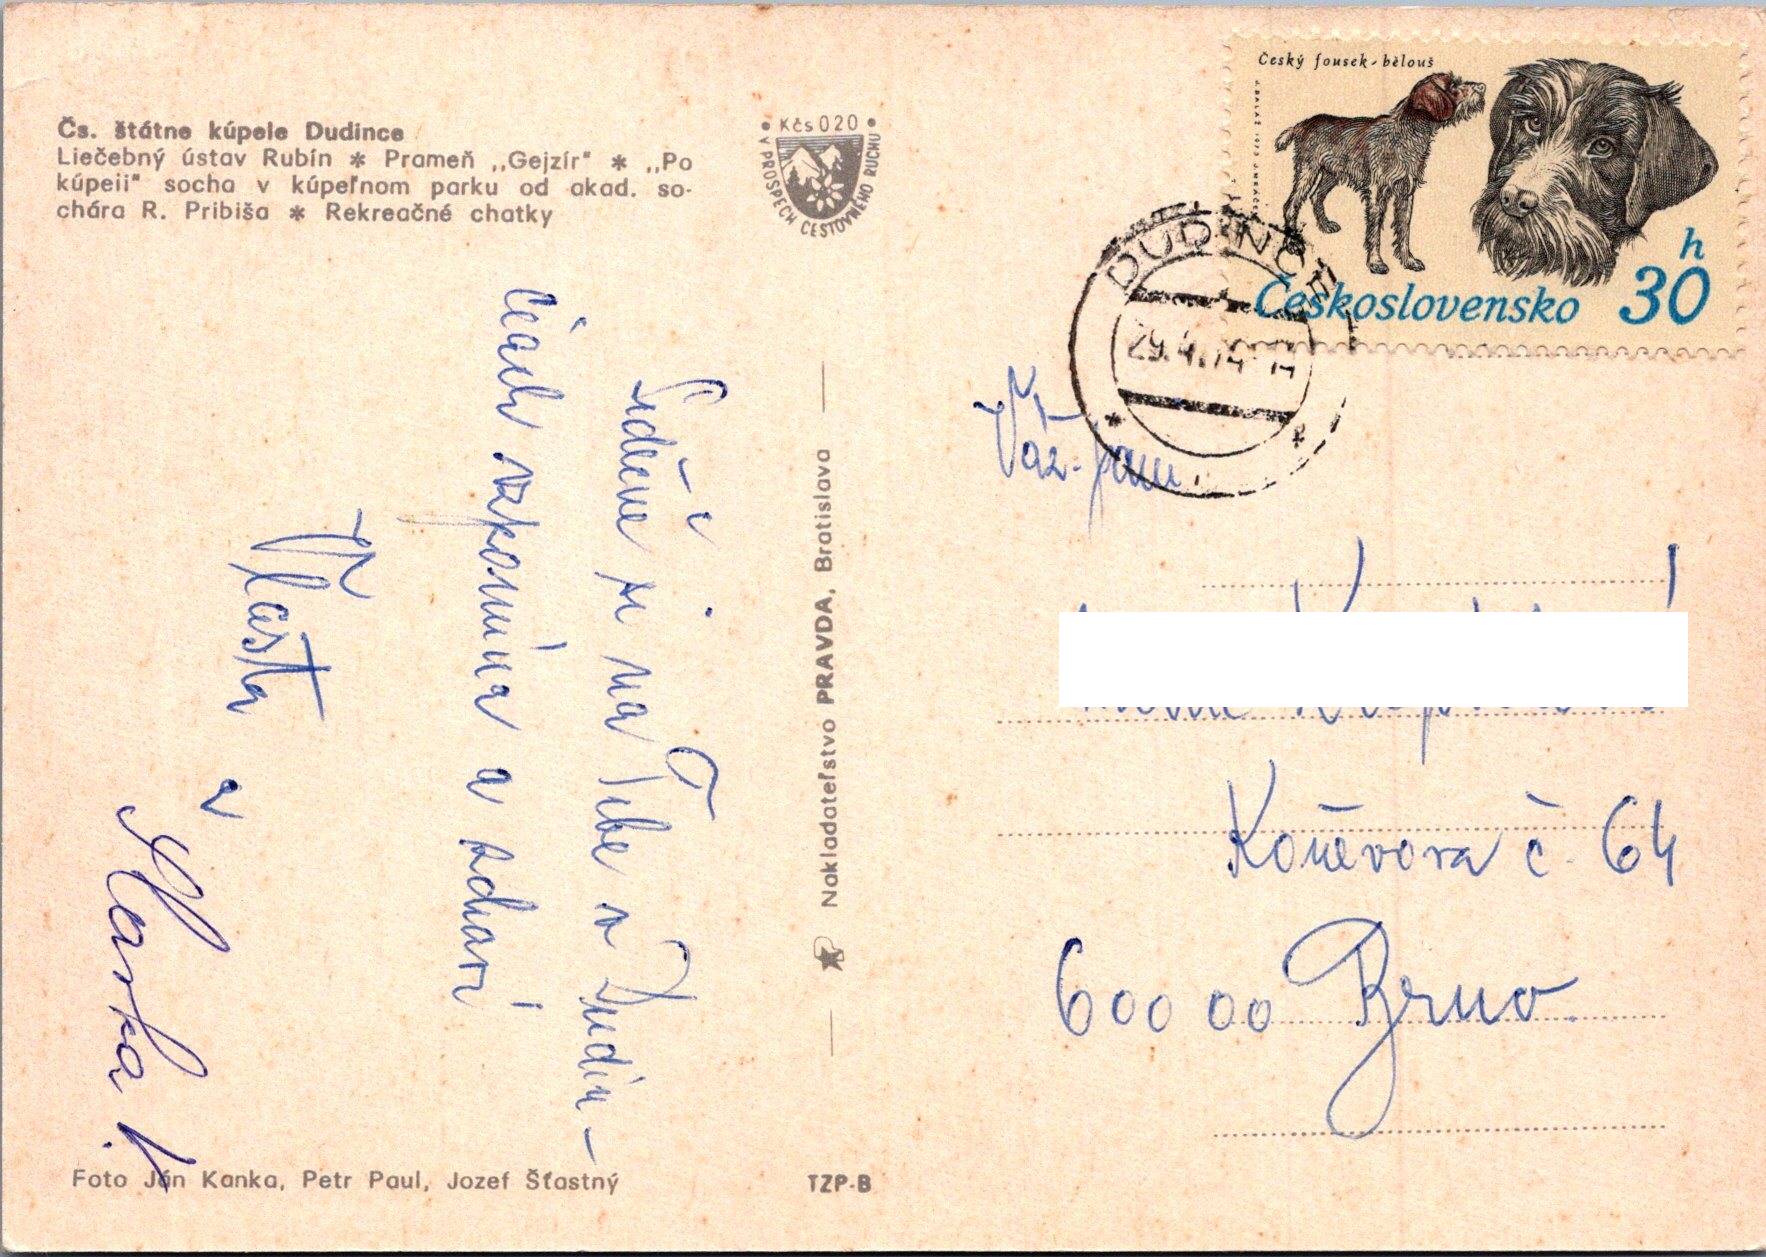 Čs. štátne kúpele Dudince
Liečebný ústav Rubín * Prameň ,,Gejzír" * ,,Po
kúpeli" socha v kúpeľnom parku od akad. so-
chára R. Pribiša * Rekreačné chatky
• Kčs 020 •
V PROSPECH CESTOVNÉHO RUCHU
Srdečne si na Tebe v Dudin-
ciach vzpomína a zdraví
Vlasta
a
Nakladateľstvo PRAVDA, Bratislava
Foto Ján Kanka, Petr Paul, Jozef Šťastný
TZP-B
Český fousek-bělouš
Československo
30 h
DUDINCE
29.4.74
Váž. paní
Koněvova č. 64
600 00 Brno